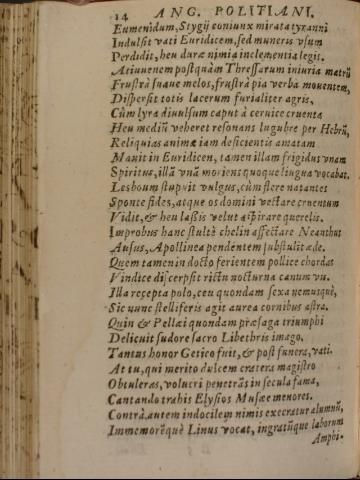 14 ANG. POLITIANI.
Eumenidum, Stygij coniunx mirata tyranni
Indulsit vati Euridicem, sed muneris vsum
Perdidit, heu duræ nimia inclementia legis.
At iuuenem postquàm Thressarum iniuria matrũ
Frustrà suaue melos, frustrà pia verba mouentem,
Dispersit totis lacerum furialiter agris,
Cùm lyra diuulsum caput à ceruice cruenta
Heu mediũ veheret resonans lugubre per Hebrũ,
Reliquias animæ iam deficientis amatam
Mouit in Euridicen, tamen illam frigidus vnam
Spiritus, illã vnã moriens quoque lingua vocabat.
Lesboum stupuit vulgus, cùm flere natantes
Sponte fides, atque os domini vectare cruentum
Vidit, & heu lassis velut aspirare querelis.
Improbus hanc stultè chelin affectare Neanthus
Ausus, Apollinea pendentem substulit æde.
Quem tamen indocto ferientem pollice chordas
Vindice discerpsit rictu nocturna canum vis.
Illa recepta polo, ceu quondam sexa nemusquè,
Sic nunc stelliferis agit aurea cornibus astra.
Quin & Pellæi quondam præsaga triumphi
Delicuit sudore sacro Libethris imago,
Tantus honor Getico fuit, & post funera, vati.
At tu, qui merito dulcem cratera magistro
Obtuleras, volucri penetrãs in secula fama,
Cantando trahis Elysios Musæe menores.
Contrà, autem indocilem nimis execratur alumnũ,
Immemoréquè Linus vocat, ingratũque laborum
Amphi-